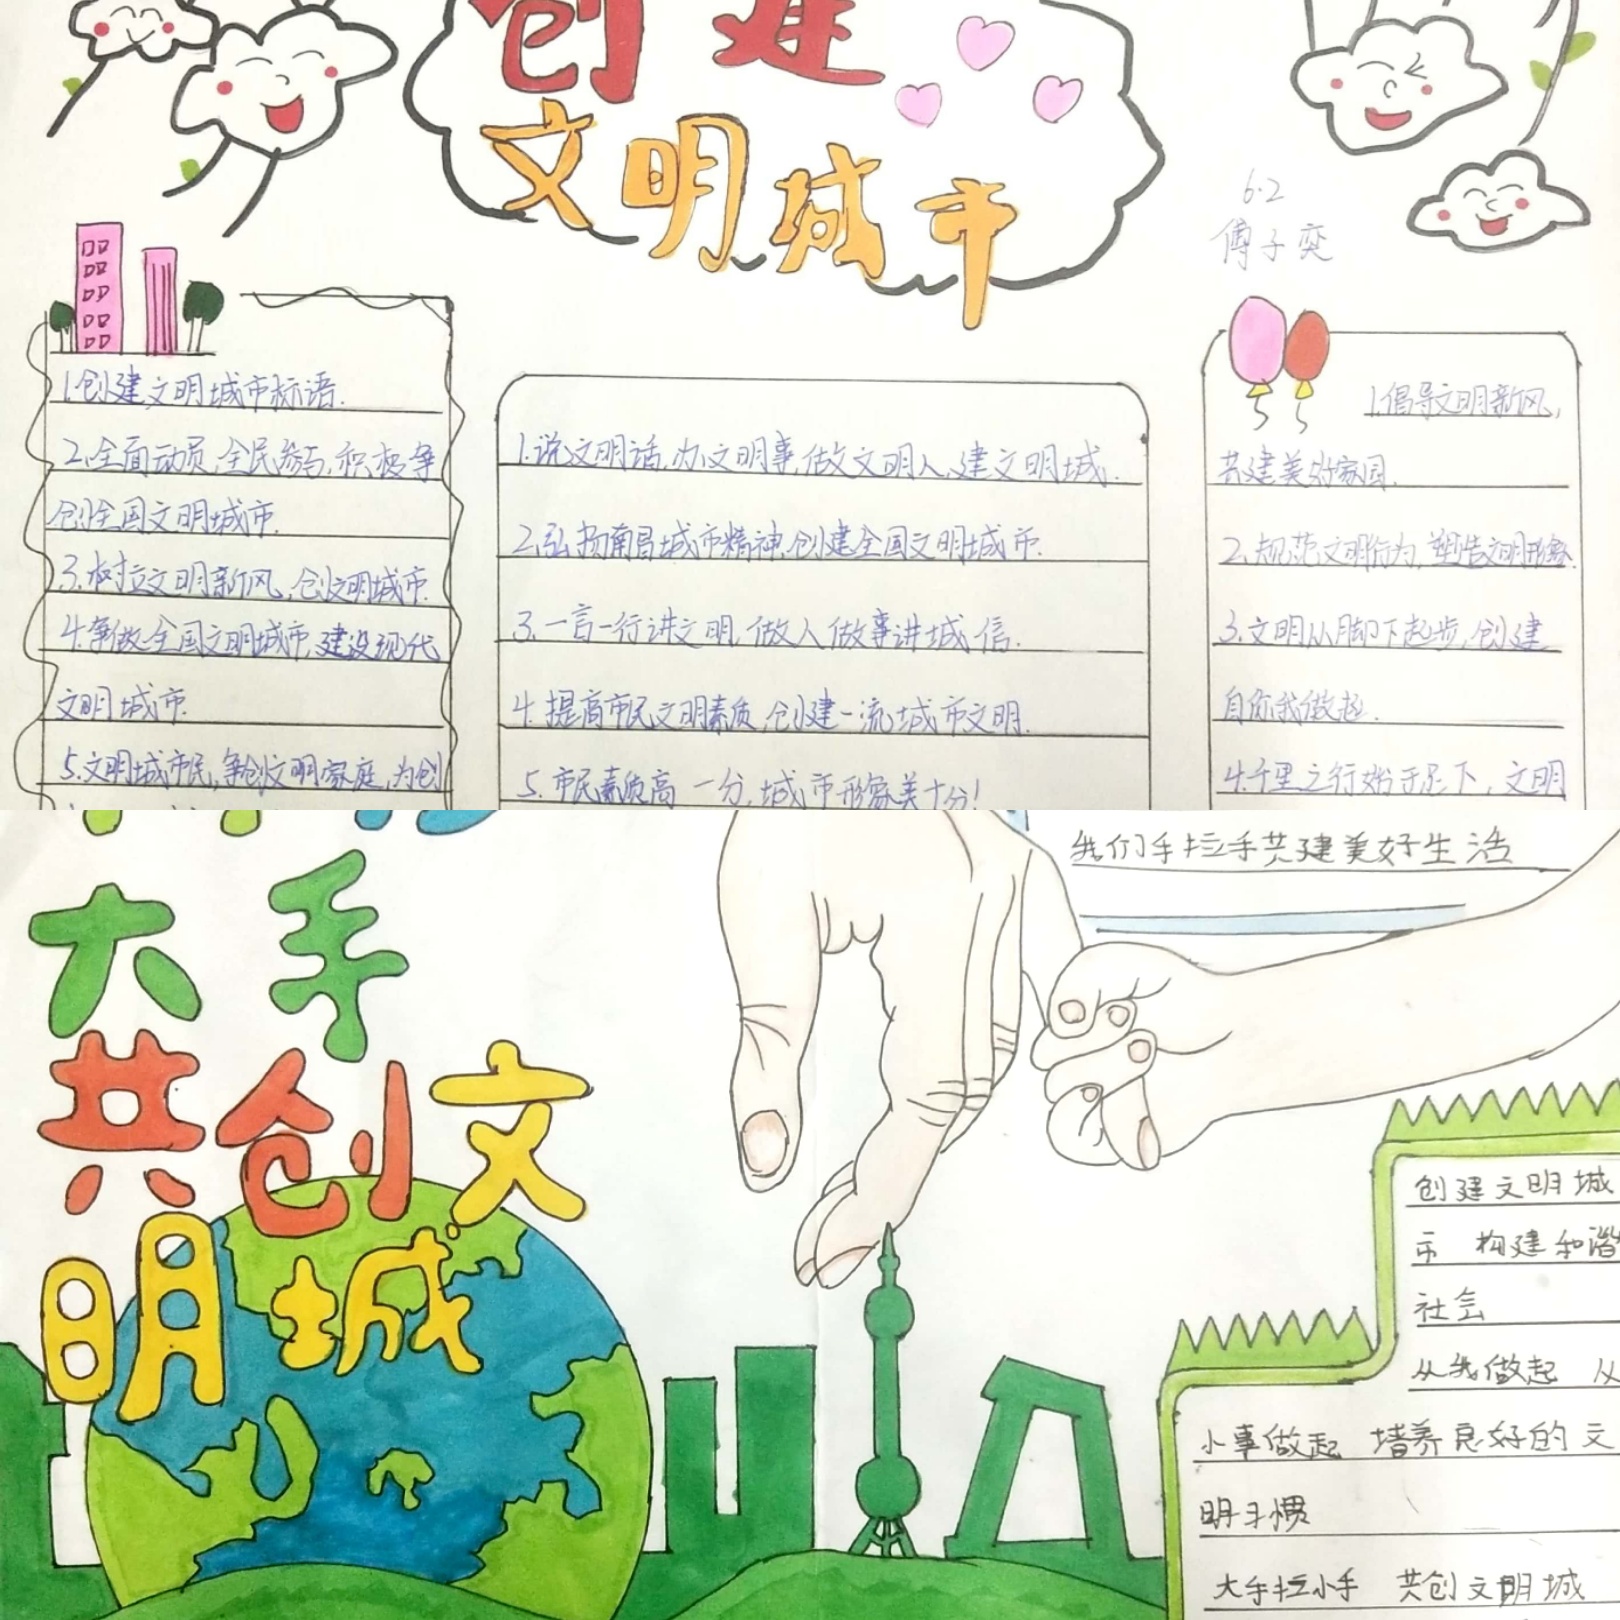 创建
文明城市
6.2
傅子奕
1.创建文明城市标语.
2.全面动员,全民参与,积极争
创全国文明城市.
3.树立文明新风,创文明城市.
4.争做全国文明城市,建设现代
文明城市.
5.文明城市民,争创文明家庭,为创
1.说文明话,办文明事,做文明人,建文明城.
2.弘扬南昌城市精神,创建全国文明城市.
3.一言一行讲文明,做人做事讲城信.
4.提高市民文明素质,创建一流城市文明.
5.市民素质高一分,城市形象美十分!
1.倡导文明新风,
共建美好家园.
2.规范文明行为,塑造文明形象.
3.文明从脚下起步,创建
自你我做起.
4.千里之行始于足下,文明
大手
共创文
明城
我们手拉手共建美好生活
创建文明城
市 构建和谐
社会
从我做起 从
小事做起 培养良好的文
明习惯
大手拉小手 共创文明城